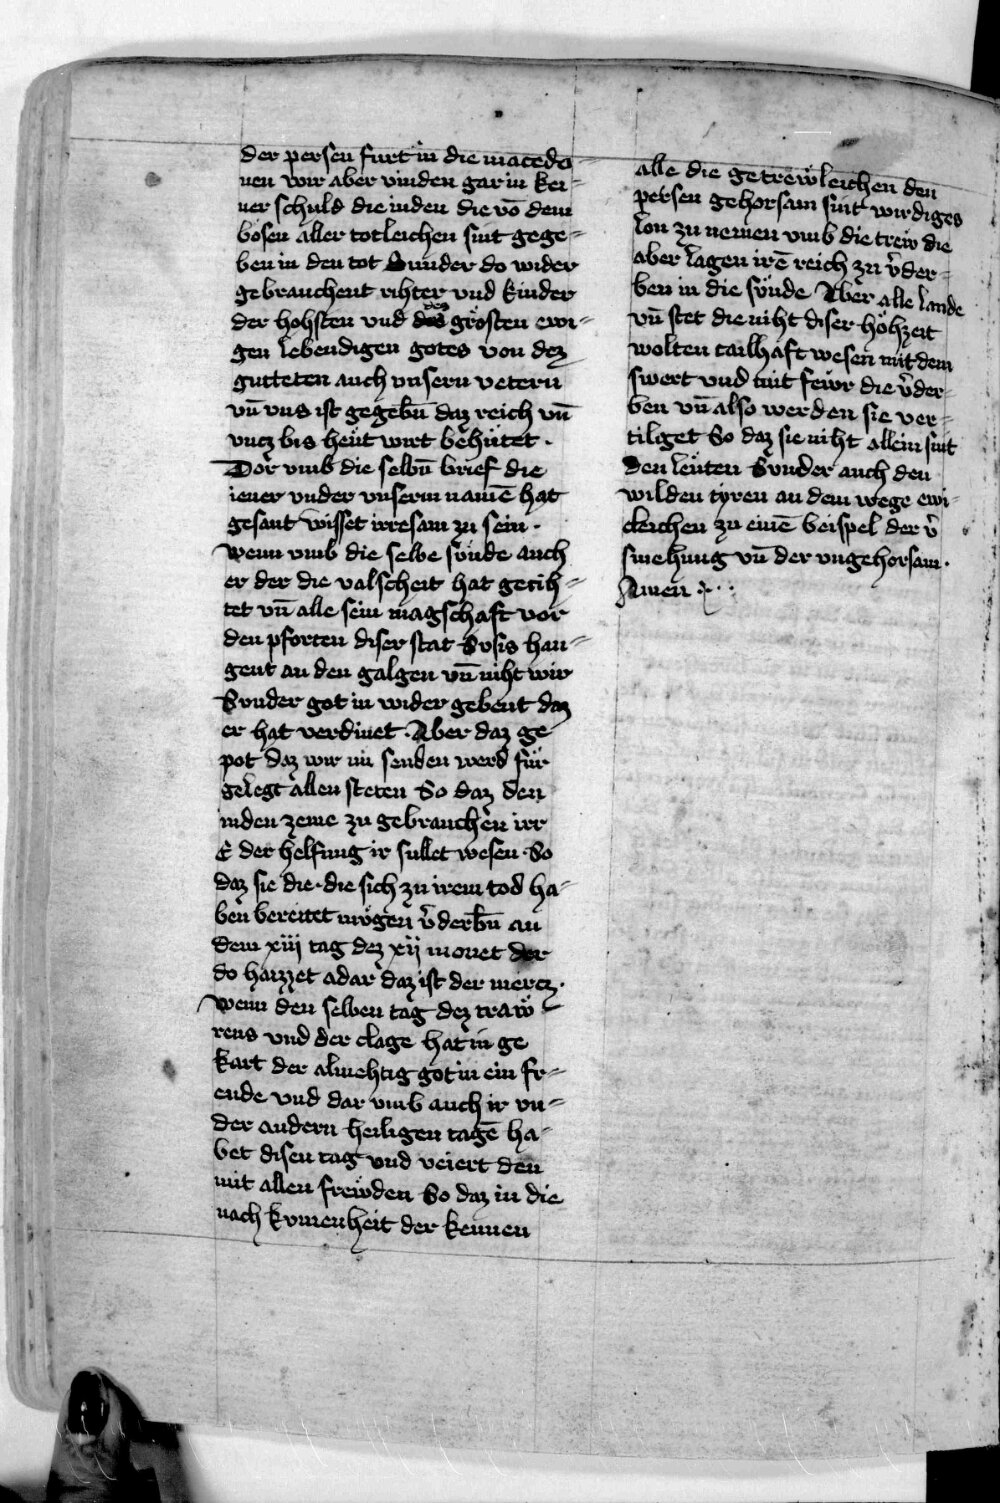 der persen furt in die macedo=
nen wir aber vinden gar in kei=
ner schuld die iuden die võ dem
bosen aller totleichen sint gege=
ben in den tot Sunder do wider
gebrauchent rihter vnd kinder
der hohsten vnd dez grösten ewi=
gen lebendigen gotes von dez
gutteten auch vnsern vetern
vn̄ vns ist gegebn̄ daz reich vn̄
vncz bis heüt wirt behütet .
Dor vmb die selbn̄ brief die
iener vnder vnserm namē hat
gesant wisset irresam zu sein .
Wenn vmb die selbe sünde auch
er der die valscheit hat getih=
tet vn̄ alle sein magschaft vor
den pforten diser stat Susis han=
gent an den galgen vn̄ niht wir
Sunder got in wider gebent daz
er hat verdinet . Aber daz ge
pot daz wir nu senden werd für
gelegt allen steten So daz den
iuden zeme zu gebrauchen irr
E der helfung ir sullet wesen . So
daz sie die . die sich zu irem tod ha=
ben bereitet mügen v̄derbn̄ an
dem xiij tag dez xij monet der
do haizzet adar daz ist der mercz .
Wenn den selben tag dez traẅ
rens vnd der clage hat in ge
kart der almehtig got in ein fr=
eude vnd dar vmb auch ir vn=
der andern heiligen tagē ha=
bet disen tag vnd veiert den
mit allen freẅden So daz in die
nach kumenheit der kennen
alle die getreẅleichen den
persen gehorsam sint wirdiges
lon zu nemen vmb die treẅ die
aber lagen irē reich zu v̄der=
ben in die sünde Aber alle lande
vn̄ stet die niht diser höhzeit
wolten tailhaft wesen mit dem
swert vnd mit feẅr die v̄der=
ben vn̄ also werden sie ver=
tilget So daz sie niht allein sint
den leüten Sunder auch den
wilden tyren an dem wege ewi=
cleichen zu einē beispel der v̄
smehung vn̄ der vngehorsam .
Amen